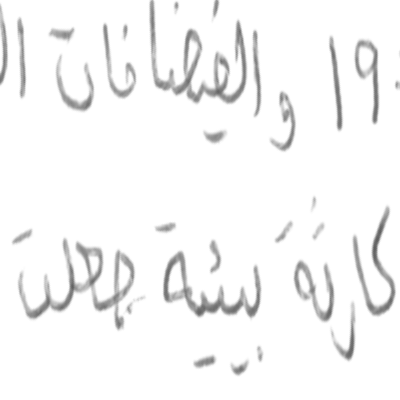 ١٩ والفيضانات ال
كارثة بيئية جعلت